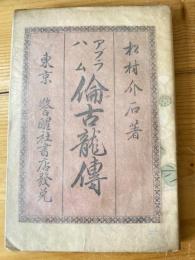 松村介石著
アブラハム
倫古龍傳
東京 警醒社書店發兌